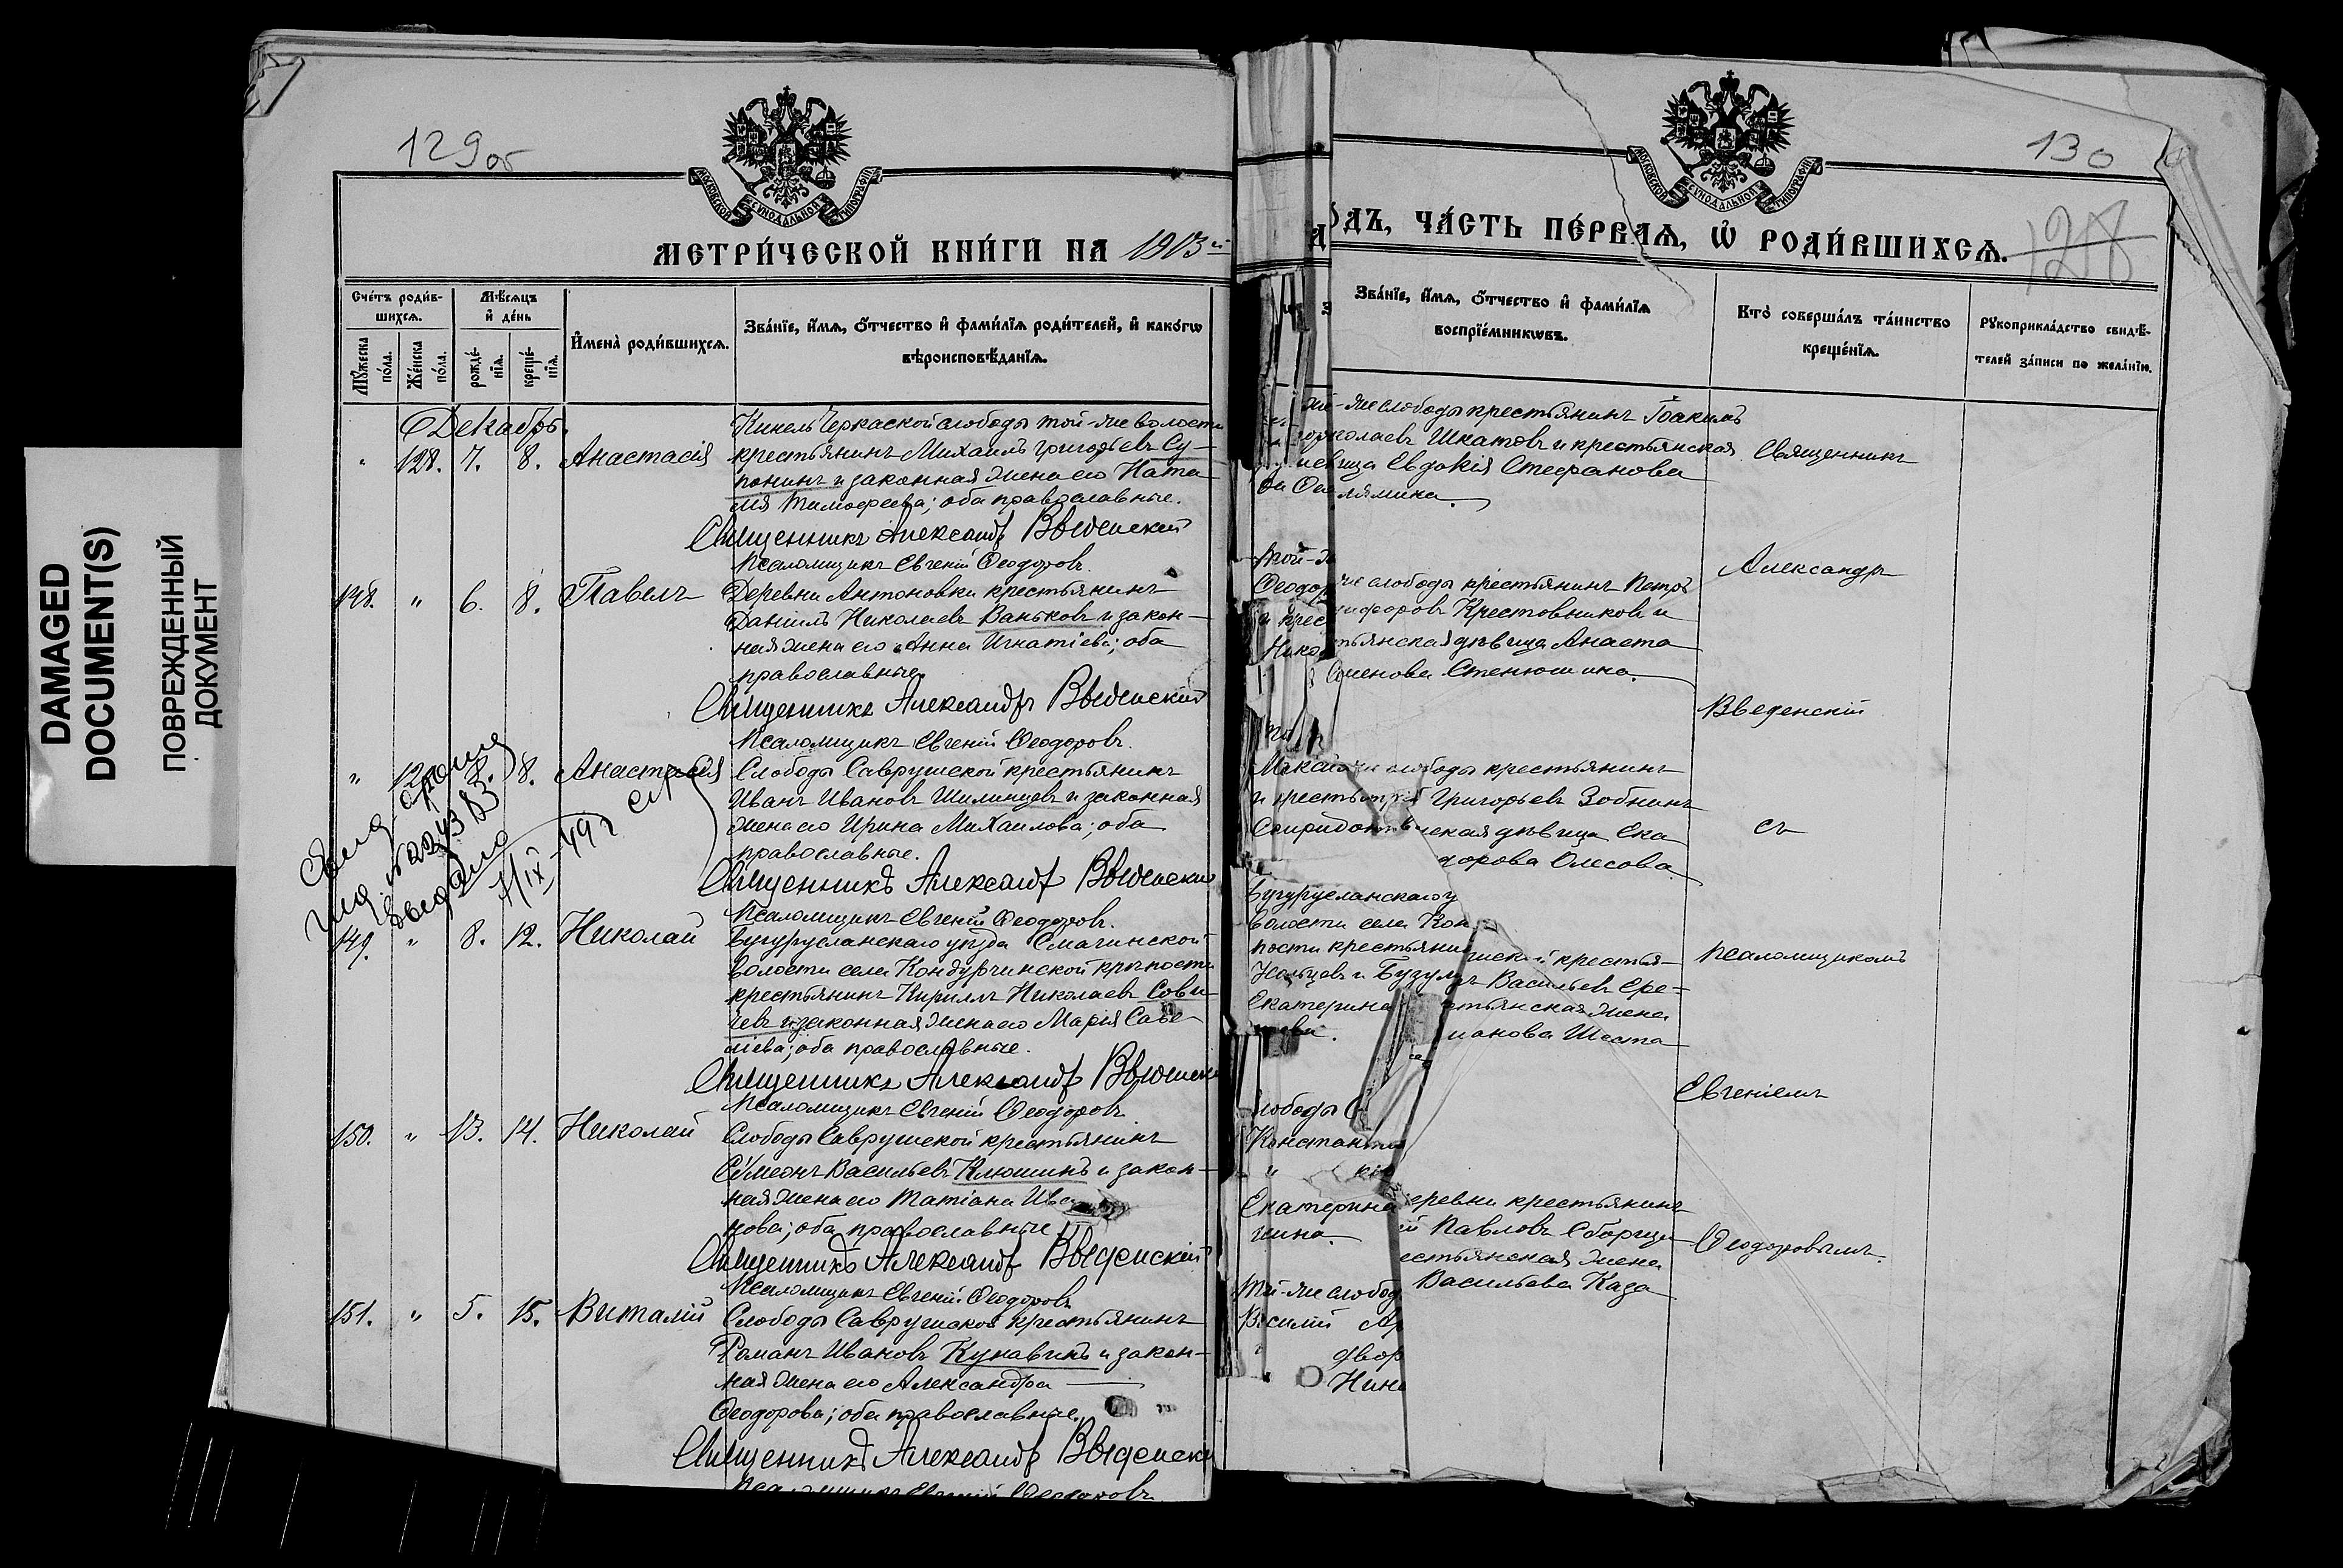 DAMAGED
DOCUMENT(S)
ПОВРЕЖДЕННЫЙ
ДОКУМЕНТ
129об
МОСКОВСКОЙ СѴНОДАЛЬНОЙ ТИПОГРАФІИ
МЕТРИ́ЧЕСКОЙ КНИ́ГИ НА 1913й
Сче́тъ роди́в-
шихсѧ.
Мѣ́сѧцъ
и҆ де́нь
И҆мена̀ роди́вшихсѧ.
Зва́нїе, и҆́мѧ, ѻ҆́тчество и҆ фами́лїѧ роди́телей, и҆ како́гѡ
вѣроисповѣ́данїѧ.
Мꙋ́жеска
по́ла.
Же́нска
по́ла.
рожде́-
нїѧ.
креще́-
нїѧ.
Декабрь.
Кинель Черкаской слободы той-же волости
" 128. 7. 8. Анастасія крестьянинъ Михаилъ Григорьевъ Су-
понинъ и законная жена его Ната
лія Тимофеева; оба православные.
Священникъ Александръ Введенскій
Псаломщикъ Евгеній Ѳеодоровъ.
148. " 6. 8. Павелъ Деревни Антоновки крестьянинъ
Даніилъ Николаевъ Ваньковъ и закон-
ная жена его Анна Игнатіева; оба
православные.
Священникъ Александръ Введенскій
Псаломщикъ Евгеній Ѳеодоровъ.
" 8. Анастасія Слободы Саврушской крестьянинъ
Иванъ Ивановъ Шилинцевъ и законная
жена его Ирина Михаилова; оба
православные.
выдано
Священникъ Александръ Введенскій
Псаломщикъ Евгеній Ѳеодоровъ.
149. " 8. 12. Николай Бугурусланскаго уѣзда Смагинской
волости села Кондурчинской крѣпости
крестьянинъ Кириллъ Николаевъ Сови-
чевъ и законная жена его Марія Саве
ліева; оба православные.
Священникъ Александръ Введенскій
Псаломщикъ Евгеній Ѳеодоровъ
150. " 13. 14. Николай Слободы Саврушской крестьянинъ
Сѵмеонъ Васильевъ Клюшинъ и закон-
ная жена его Татіана Ива
нова; оба православные
Священникъ Александръ Введенскій
Псаломщикъ Евгеній Ѳеодоровъ
151. " 5. 15. Виталій Слободы Саврушской крестьянинъ
Романъ Ивановъ Кунавинъ и закон-
ная жена его Александра
Ѳеодорова; оба православные.
Священникъ Александръ Введенскі
Псаломщикъ Евгеній Ѳеодоровъ
130
128
МОСКОВСКОЙ СѴНОДАЛЬНОЙ ТИПОГРАФІИ
ОДЪ, ЧА́СТЬ ПЕ́РВАѦ, Ѡ҆ РОДИ́ВШИХСѦ.
Зва́нїе, и҆́мѧ, ѻ҆́тчество и҆ фами́лїѧ
воспрїе́мникѡвъ.
Кто̀ соверша́лъ та́инство
креще́нїѧ.
Рꙋкоприкла́дство свидѣ́-
телей за́писи по жела́нїю.
же слободы крестьянинъ Іоакимъ
Шкатовъ и крестьянская
дѣвица Евдокія Стефанова
Священникъ
Той-ж
Ѳеодор
и крес
Нико
же слободы крестьянинъ Петръ
Никифоровъ Крестовниковъ и
тьянская дѣвица Анаста
Семенова Стенюшина.
Александръ
Введенскій
слободы крестьянинъ
и крестья Григорьевъ Зобнинъ
Спиридон ская дѣвица Ека
дорова Олесова
съ
Бугурусланскаго у
волости села Кон
пости крестьянин
Екатерина
крестья-
Васильевъ
стьянская жена
ианова Шеста
псаломщикомъ
Евгеніемъ
Слободы С
Константи
Екатерина
шина.
деревни крестьянинъ
й Павловъ Сборщи
естьянская жена
Васильева Каза
Ѳеодоровымъ.
Той-же слобод
Василій Ар
двор
Нин